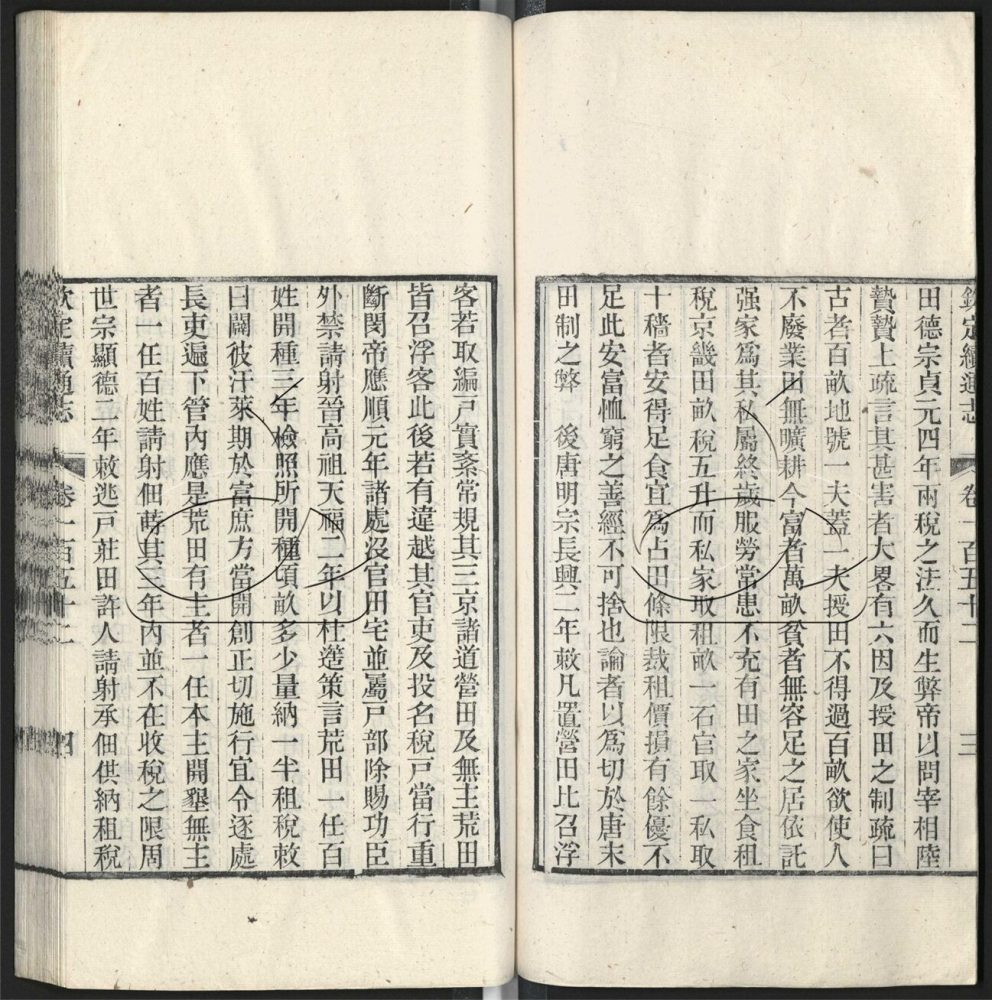 欽定續通志　卷一百五十二　三
田德宗貞元四年兩稅之法久而生弊帝以問宰相陸
贄贄上疏言其甚害者大畧有六因及授田之制疏曰
古者百畝地號一夫蓋一夫授田不得過百畝欲使人
不廢業田無曠耕今富者萬畝貧者無容足之居依託
强家爲其私屬終歲服勞常患不充有田之家坐食租
稅京畿田畝稅五升而私家取租畝一石官取一私取
十穡者安得足食宜爲占田條限裁租價損有餘優不
足此安富恤窮之善經不可捨也論者以爲切於唐末
田制之弊　後唐明宗長興二年敕凡置營田比召浮
客若取編戸實紊常規其三京諸道營田及無主荒田
皆召浮客此後若有違越其官吏及投名稅戸當行重
斷閔帝應順元年諸處沒官田宅並屬戸部除賜功臣
外禁請射晉高祖天福二年以杜簉策言荒田一任百
姓開種三年檢照所開種頃畝多少量納一半租稅敕
曰闢彼汙萊期於富庶方當開創正切施行宜令逐處
長吏遍下管內應是荒田有主者一任本主開墾無主
者一任百姓請射佃蒔其三年內並不在收稅之限周
世宗顯德二年敕逃戸莊田許人請射承佃供納租稅
欽定續通志　卷一百五十二　四